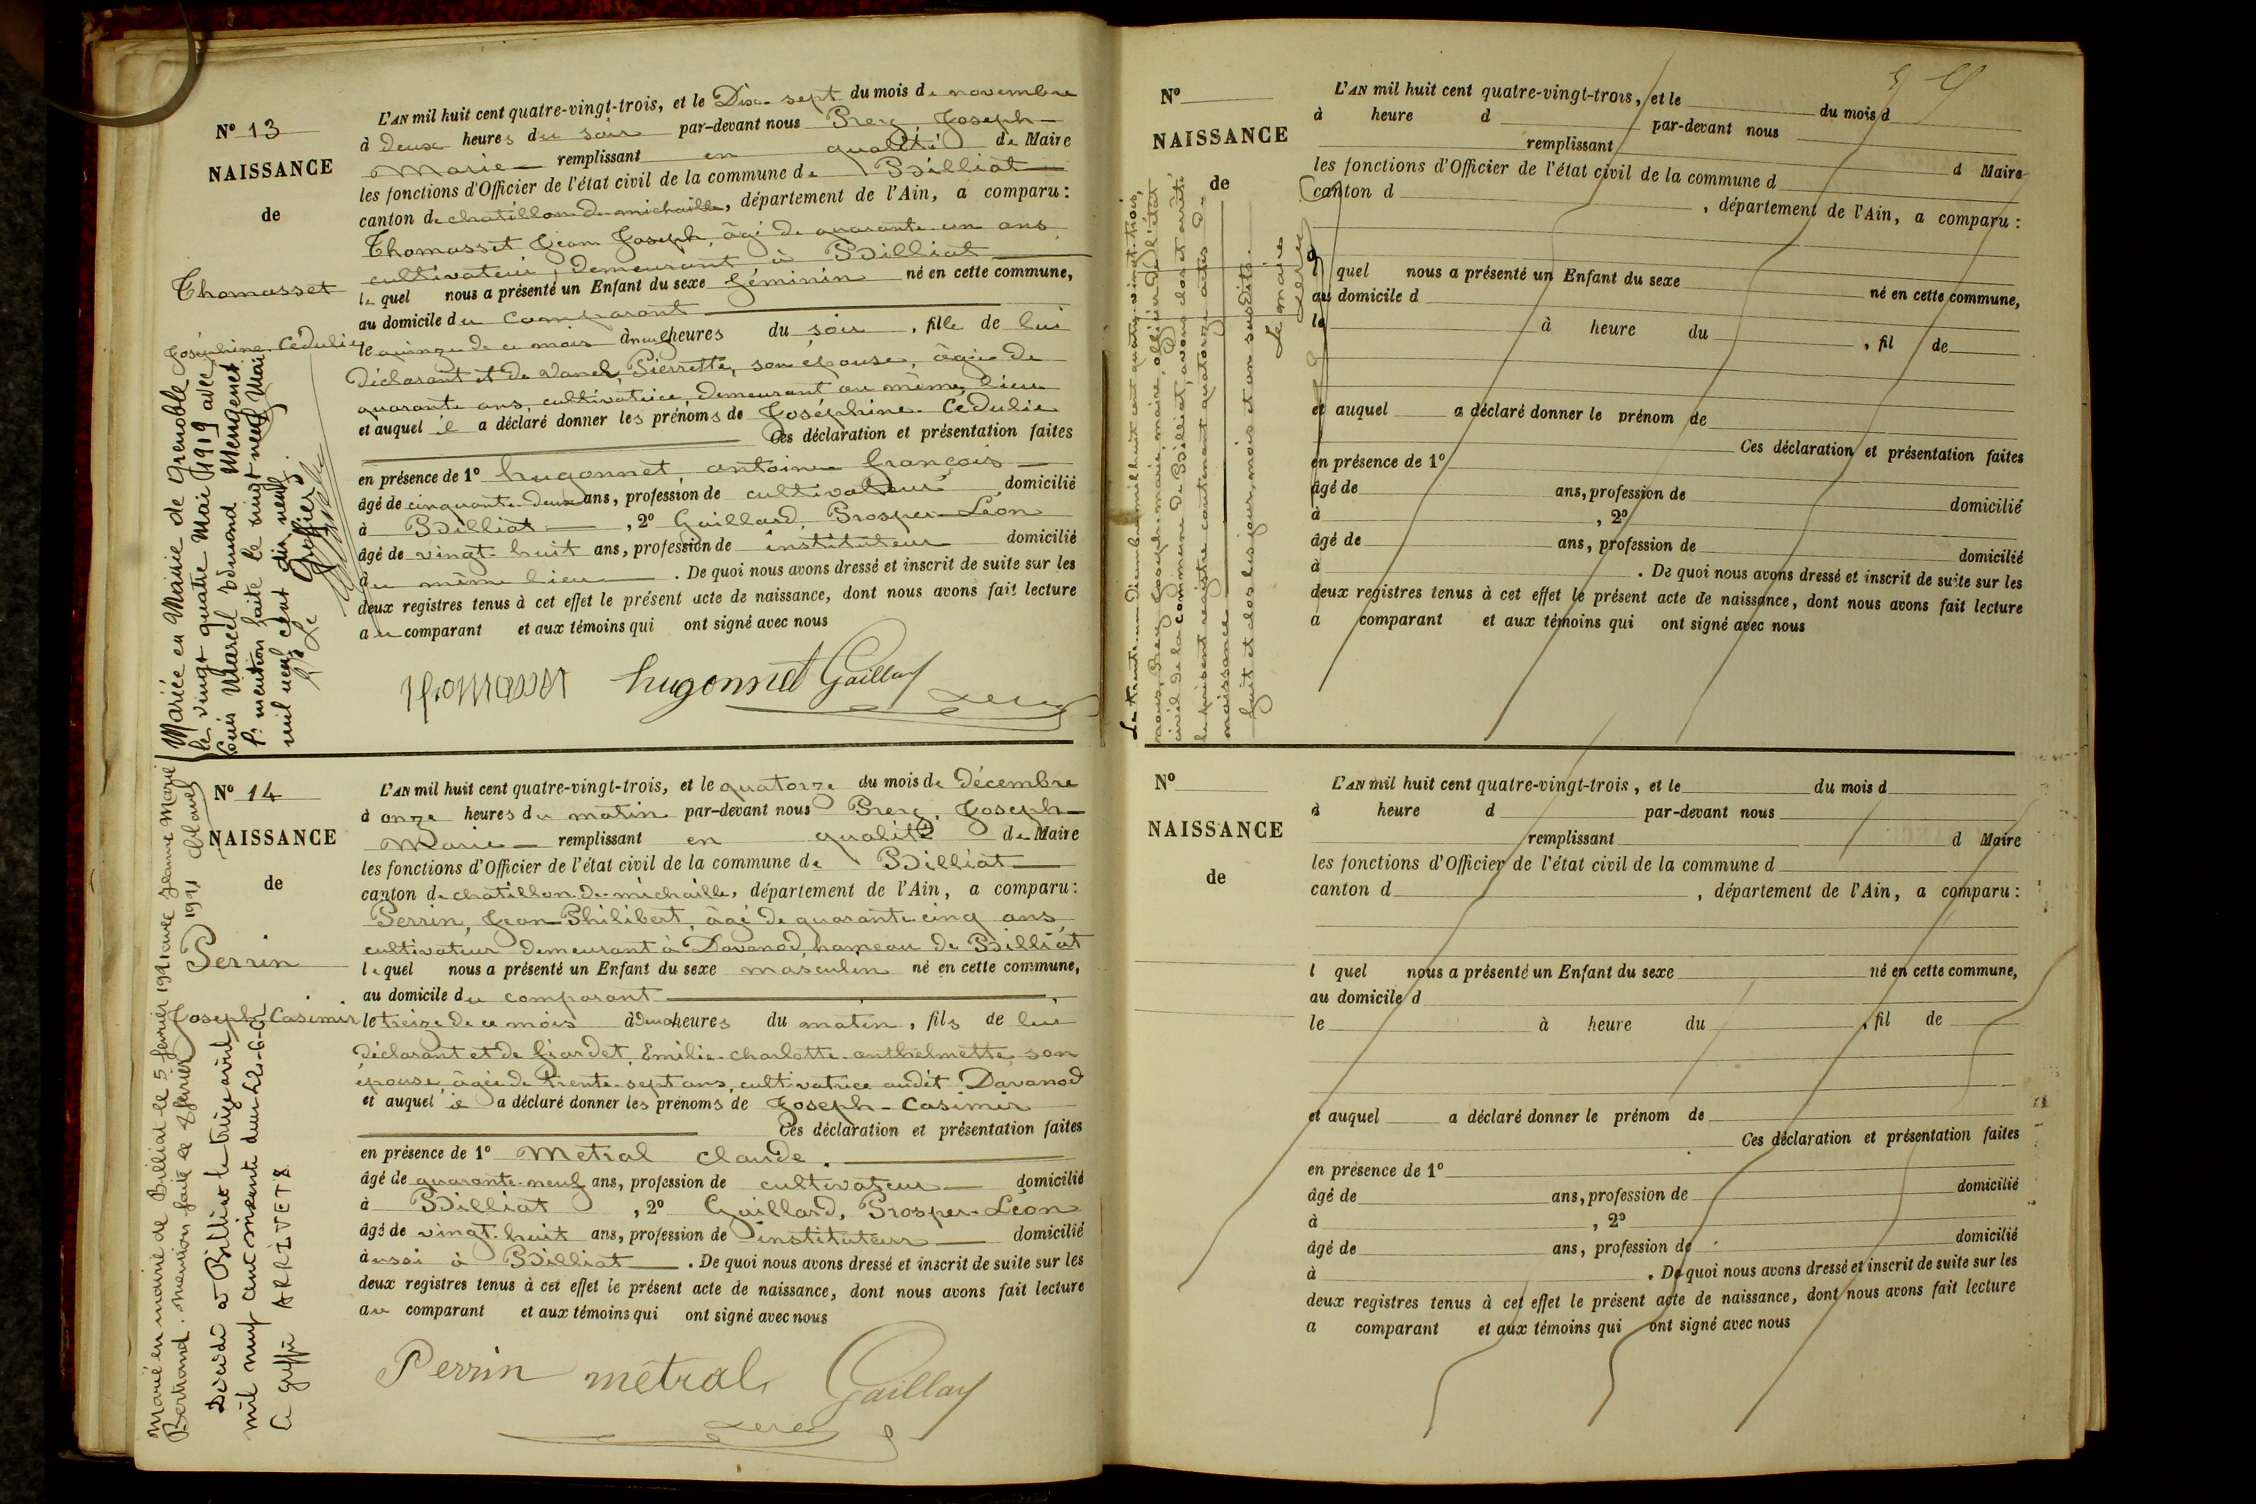 N° 13
NAISSANCE
de
Thomasset
Joséphine Cédulie
L'AN mil huit cent quatre-vingt-trois, et le Dix-sept du mois de novembre
à deux heures du soir par-devant nous Joseph
Marie remplissant en qualité de Maire
les fonctions d'Officier de l'état civil de la commune de Billiat
canton de chatillon-de-michaille, département de l'Ain, a comparu :
Thomasset Jean Joseph, âgé de quarante un ans
cultivateur, demeurant à Billiat
lequel nous a présenté un Enfant du sexe féminin né en cette commune,
au domicile du comparant
le quinze de ce mois à neuf heures du soir, fille de lui
déclarant et de Pierrette, son épouse, âgée de
quarante ans, cultivatrice, demeurant au même lieu
et auquel il a déclaré donner les prénoms de Joséphine Cédulie
Ces déclaration et présentation faites
en présence de 1° hugonnet antoine françois
âgé de cinquante-deux ans, profession de cultivateur domicilié
à Billiat, 2° Gaillard, Prosper-Léon
âgé de vingt-huit ans, profession de instituteur domicilié
au même lieu. De quoi nous avons dressé et inscrit de suite sur les
deux registres tenus à cet effet le présent acte de naissance, dont nous avons fait lecture
au comparant et aux témoins qui ont signé avec nous
Thomasset hugonnet Gaillard
Mariée en Mairie de Grenoble
le vingt quatre Mai 1919 avec
Louis Marcel Edmond Mengenet
P. mention faite le vingt neuf Mai
mil neuf cent dix neuf.
Le Greffier
N° 14
NAISSANCE
de
Perrin
Joseph Casimir
L'AN mil huit cent quatre-vingt-trois, et le quatorze du mois de Décembre
à onze heures du matin par-devant nous Joseph
Marie remplissant en qualité de Maire
les fonctions d'Officier de l'état civil de la commune de Billiat
canton de chatillon-de-michaille, département de l'Ain, a comparu :
Perrin, Jean Philibert, âgé de quarante cinq ans
cultivateur demeurant à Davanod, hameau de Billiat
lequel nous a présenté un Enfant du sexe masculin né en cette commune,
au domicile du comparant
le treize de ce mois à deux heures du matin, fils de lui
déclarant et de Emilie-charlotte-anthelmette son
épouse, âgée de trente-sept ans, cultivatrice audit Davanod
et auquel il a déclaré donner les prénoms de Joseph-Casimir
Ces déclaration et présentation faites
en présence de 1° Metral claude.
âgé de quarante-neuf ans, profession de cultivateur domicilié
à Billiat, 2° Gaillard, Prosper-Léon
âgé de vingt-huit ans, profession de instituteur domicilié
aussi à Billiat. De quoi nous avons dressé et inscrit de suite sur les
deux registres tenus à cet effet le présent acte de naissance, dont nous avons fait lecture
au comparant et aux témoins qui ont signé avec nous
Perrin métral Gaillard
Marié en mairie de Billiat le 5 février 1921 avec Jeanne Marie
Bertrand. mention faite le 8 février 1921
Décédé à Billiat le treize avril
mil neuf cent soixante deux
Le greffier ARRIVETX
Le trente-un Décembre mil huit cent quatre-vingt-trois,
nous, Joseph-marie, maire, officier de l'état
civil de la commune de Billiat, avons clos et arrêté
le présent registre contenant quatorze actes de
naissance
fait et clos les jour, mois et an susdits.
Le maire
N°
NAISSANCE
de
L'AN mil huit cent quatre-vingt-trois, et le du mois d
à heure d par-devant nous
remplissant d Maire
les fonctions d'Officier de l'état civil de la commune d
canton d , département de l'Ain, a comparu :
l quel nous a présenté un Enfant du sexe né en cette commune,
au domicile d
le à heure du , fil de
et auquel a déclaré donner le prénom de
Ces déclaration et présentation faites
en présence de 1°
âgé de ans, profession de domicilié
à , 2°
âgé de ans, profession de domicilié
à . De quoi nous avons dressé et inscrit de suite sur les
deux registres tenus à cet effet le présent acte de naissance, dont nous avons fait lecture
a comparant et aux témoins qui ont signé avec nous
N°
NAISSANCE
de
L'AN mil huit cent quatre-vingt-trois, et le du mois d
à heure d par-devant nous
remplissant d Maire
les fonctions d'Officier de l'état civil de la commune d
canton d , département de l'Ain, a comparu :
l quel nous a présenté un Enfant du sexe né en cette commune,
au domicile d
le à heure du , fil de
et auquel a déclaré donner le prénom de
Ces déclaration et présentation faites
en présence de 1°
âgé de ans, profession de domicilié
à , 2°
âgé de ans, profession de domicilié
à . De quoi nous avons dressé et inscrit de suite sur les
deux registres tenus à cet effet le présent acte de naissance, dont nous avons fait lecture
a comparant et aux témoins qui ont signé avec nous